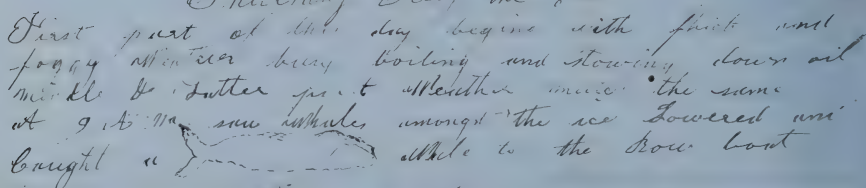 First part of this day begins with thick and
foggy weather busy boiling and stowing down oil
middle & latter part Weather much the same
at 9 A M saw whales amongst the ice Lowered and
Caught a Whale to the bow boat